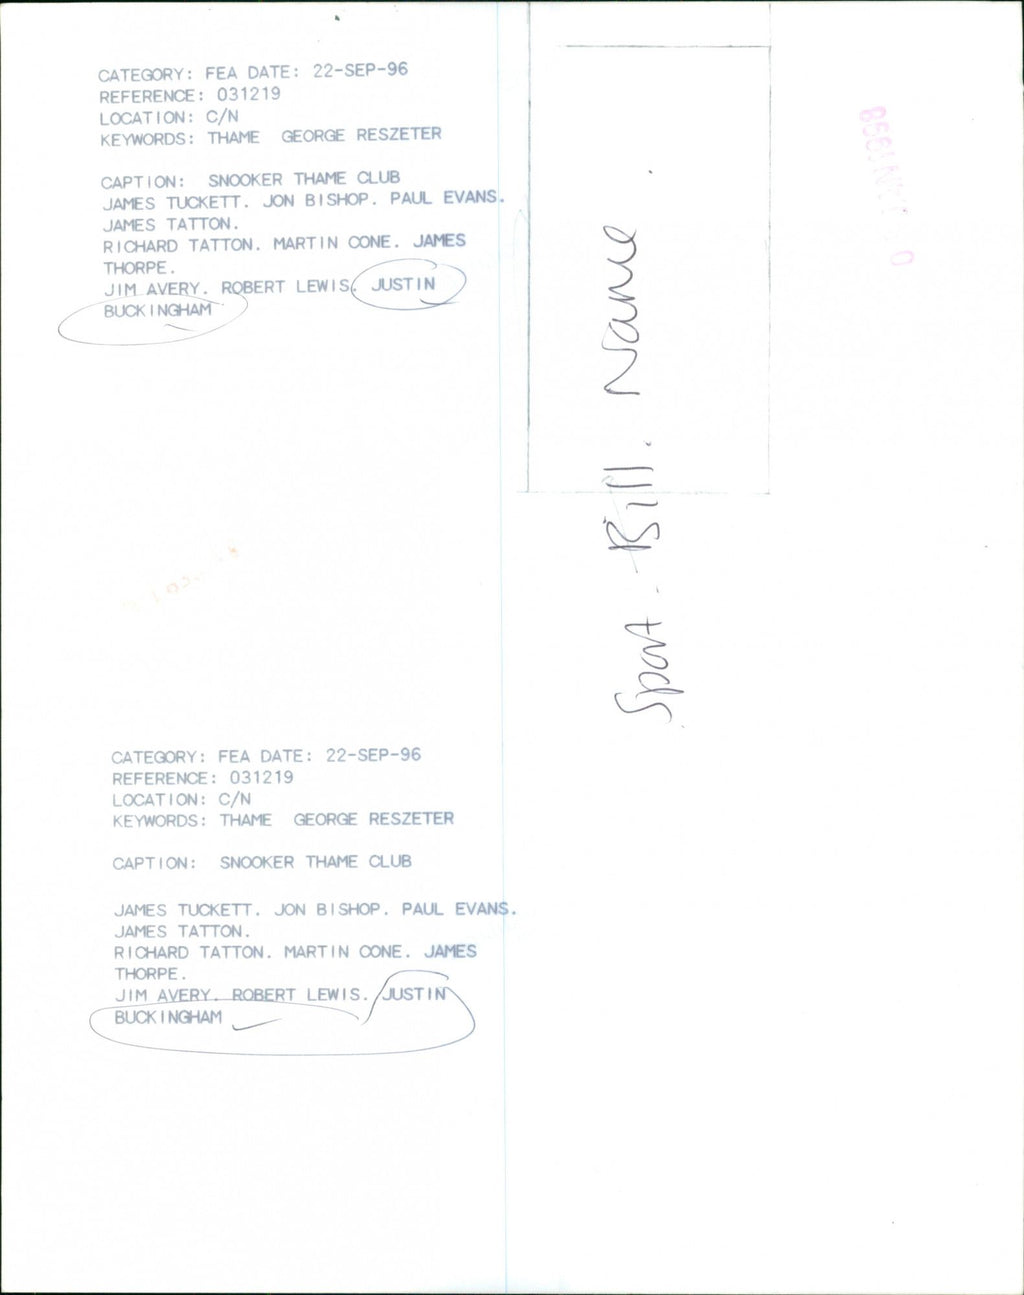 CATEGORY: FEA DATE: 22-SEP-96
REFERENCE: 031219
LOCATION: C/N
KEYWORDS: THAME GEORGE RESZETER
CAPTION: SNOOKER THAME CLUB
JAMES TUCKETT. JON BISHOP. PAUL EVANS.
JAMES TATTON.
RICHARD TATTON. MARTIN CONE. JAMES
THORPE.
JIM AVERY. ROBERT LEWIS. JUSTIN
BUCKINGHAM
Sport - Bill. Name
CATEGORY: FEA DATE: 22-SEP-96
REFERENCE: 031219
LOCATION: C/N
KEYWORDS: THAME GEORGE RESZETER
CAPTION: SNOOKER THAME CLUB
JAMES TUCKETT. JON BISHOP. PAUL EVANS.
JAMES TATTON.
RICHARD TATTON. MARTIN CONE. JAMES
THORPE.
JIM AVERY. ROBERT LEWIS. JUSTIN
BUCKINGHAM